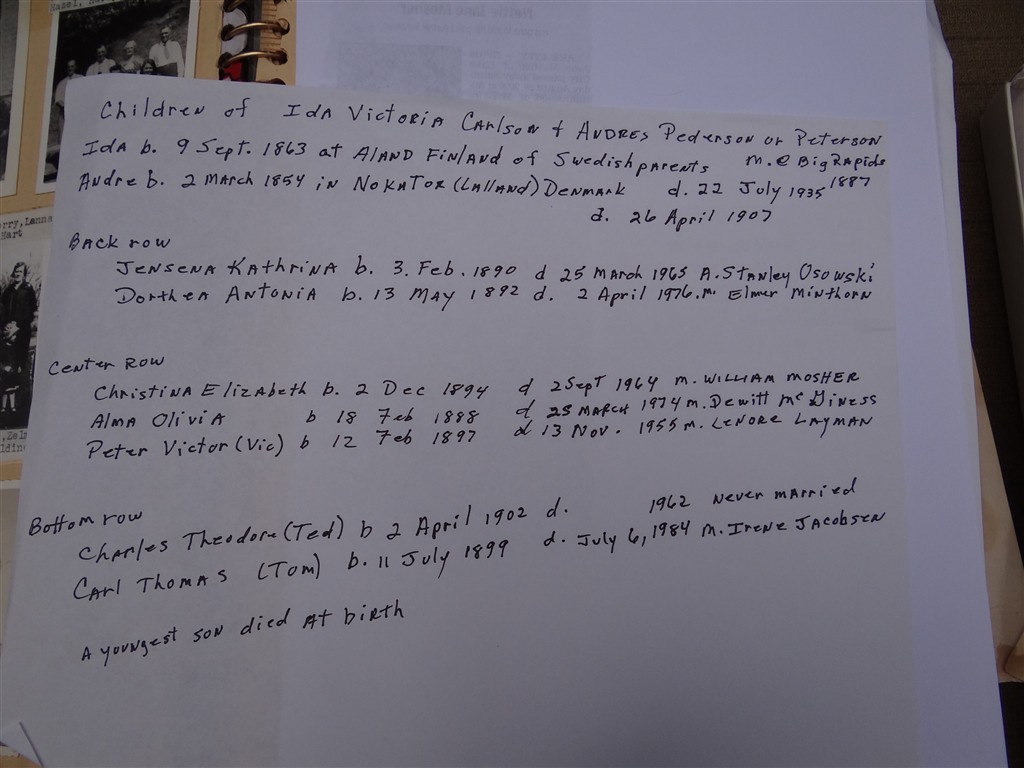 Hazel,
Children of Ida Victoria Carlson + Andres Pederson or Peterson
Ida b. 9 Sept. 1863 at Aland Finland of Swedish parents m. @ Big Rapids
1887
Andre b. 2 March 1854 in Nokator (Lalland) Denmark d. 22 July 1935
d. 26 April 1907
Back row
Jensena Kathrina b. 3. Feb. 1890 d 25 March 1965 A. Stanley Osowski
Dorthea Antonia b. 13 May 1892 d. 2 April 1976. m. Elmer Minthorn
Center Row
Christina Elizabeth b. 2 Dec 1894 d 2 Sept 1964 m. William Mosher
Alma Olivia b 18 Feb 1888 d 25 March 1974 m. Dewitt McGiness
Peter Victor (Vic) b 12 Feb 1897 d 13 Nov. 1955 m. Lenore Layman
Bottom row
Charles Theodore (Ted) b 2 April 1902 d. 1962 Never married
Carl Thomas (Tom) b. 11 July 1899 d. July 6, 1984 m. Irene Jacobsen
A youngest son died at birth
rry, Lanne
Hart